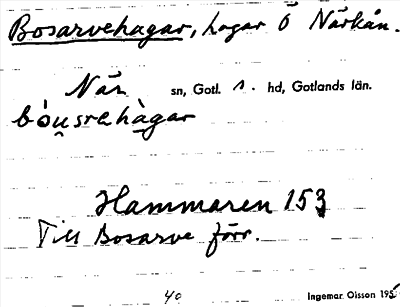 Bosarvehagar, hagar Ö Närkån.
När sn, Gotl. s. hd, Gotlands län.
bòu̲srehàgar
Hammaren 153
Till Bosarve förr.
40 Ingemar Olsson 195